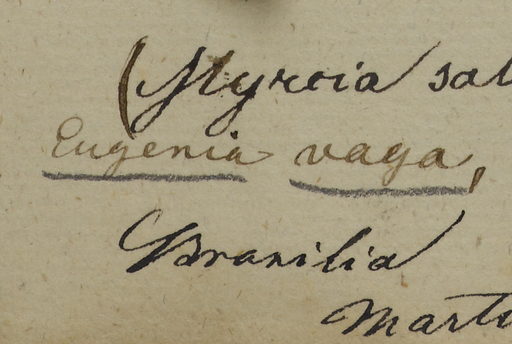 (Myrcia sal
Eugenia vaga,
Brasilia
Mart